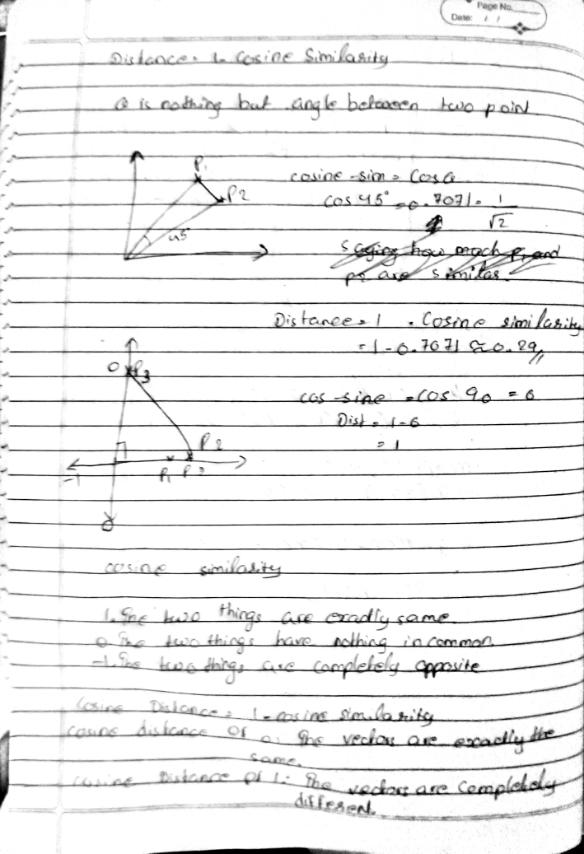 Page No.
Date: / /
Distance = 1 - Cosine Similarity
θ is nothing but angle between two point
P1
P2
45°
cosine-sim = Cos θ
cos 45° = 0.7071 = 1/√2
saying how much P1 and
P2 are similar
Distance = 1 - Cosine similarity
= 1 - 0.7071 ≈ 0.29
P3
cos-sine = cos 90 = 0
Dist = 1 - 0
= 1
P2
-1
P1
cosine similarity
1. The two things are exactly same.
0 The two things have nothing in common
-1. The two things are completely opposite
Cosine Distance = 1 - cosine similarity
cosine distance of 0: The vectors are exactly the
same.
cosine Distance of 1: The vectors are completely
different.